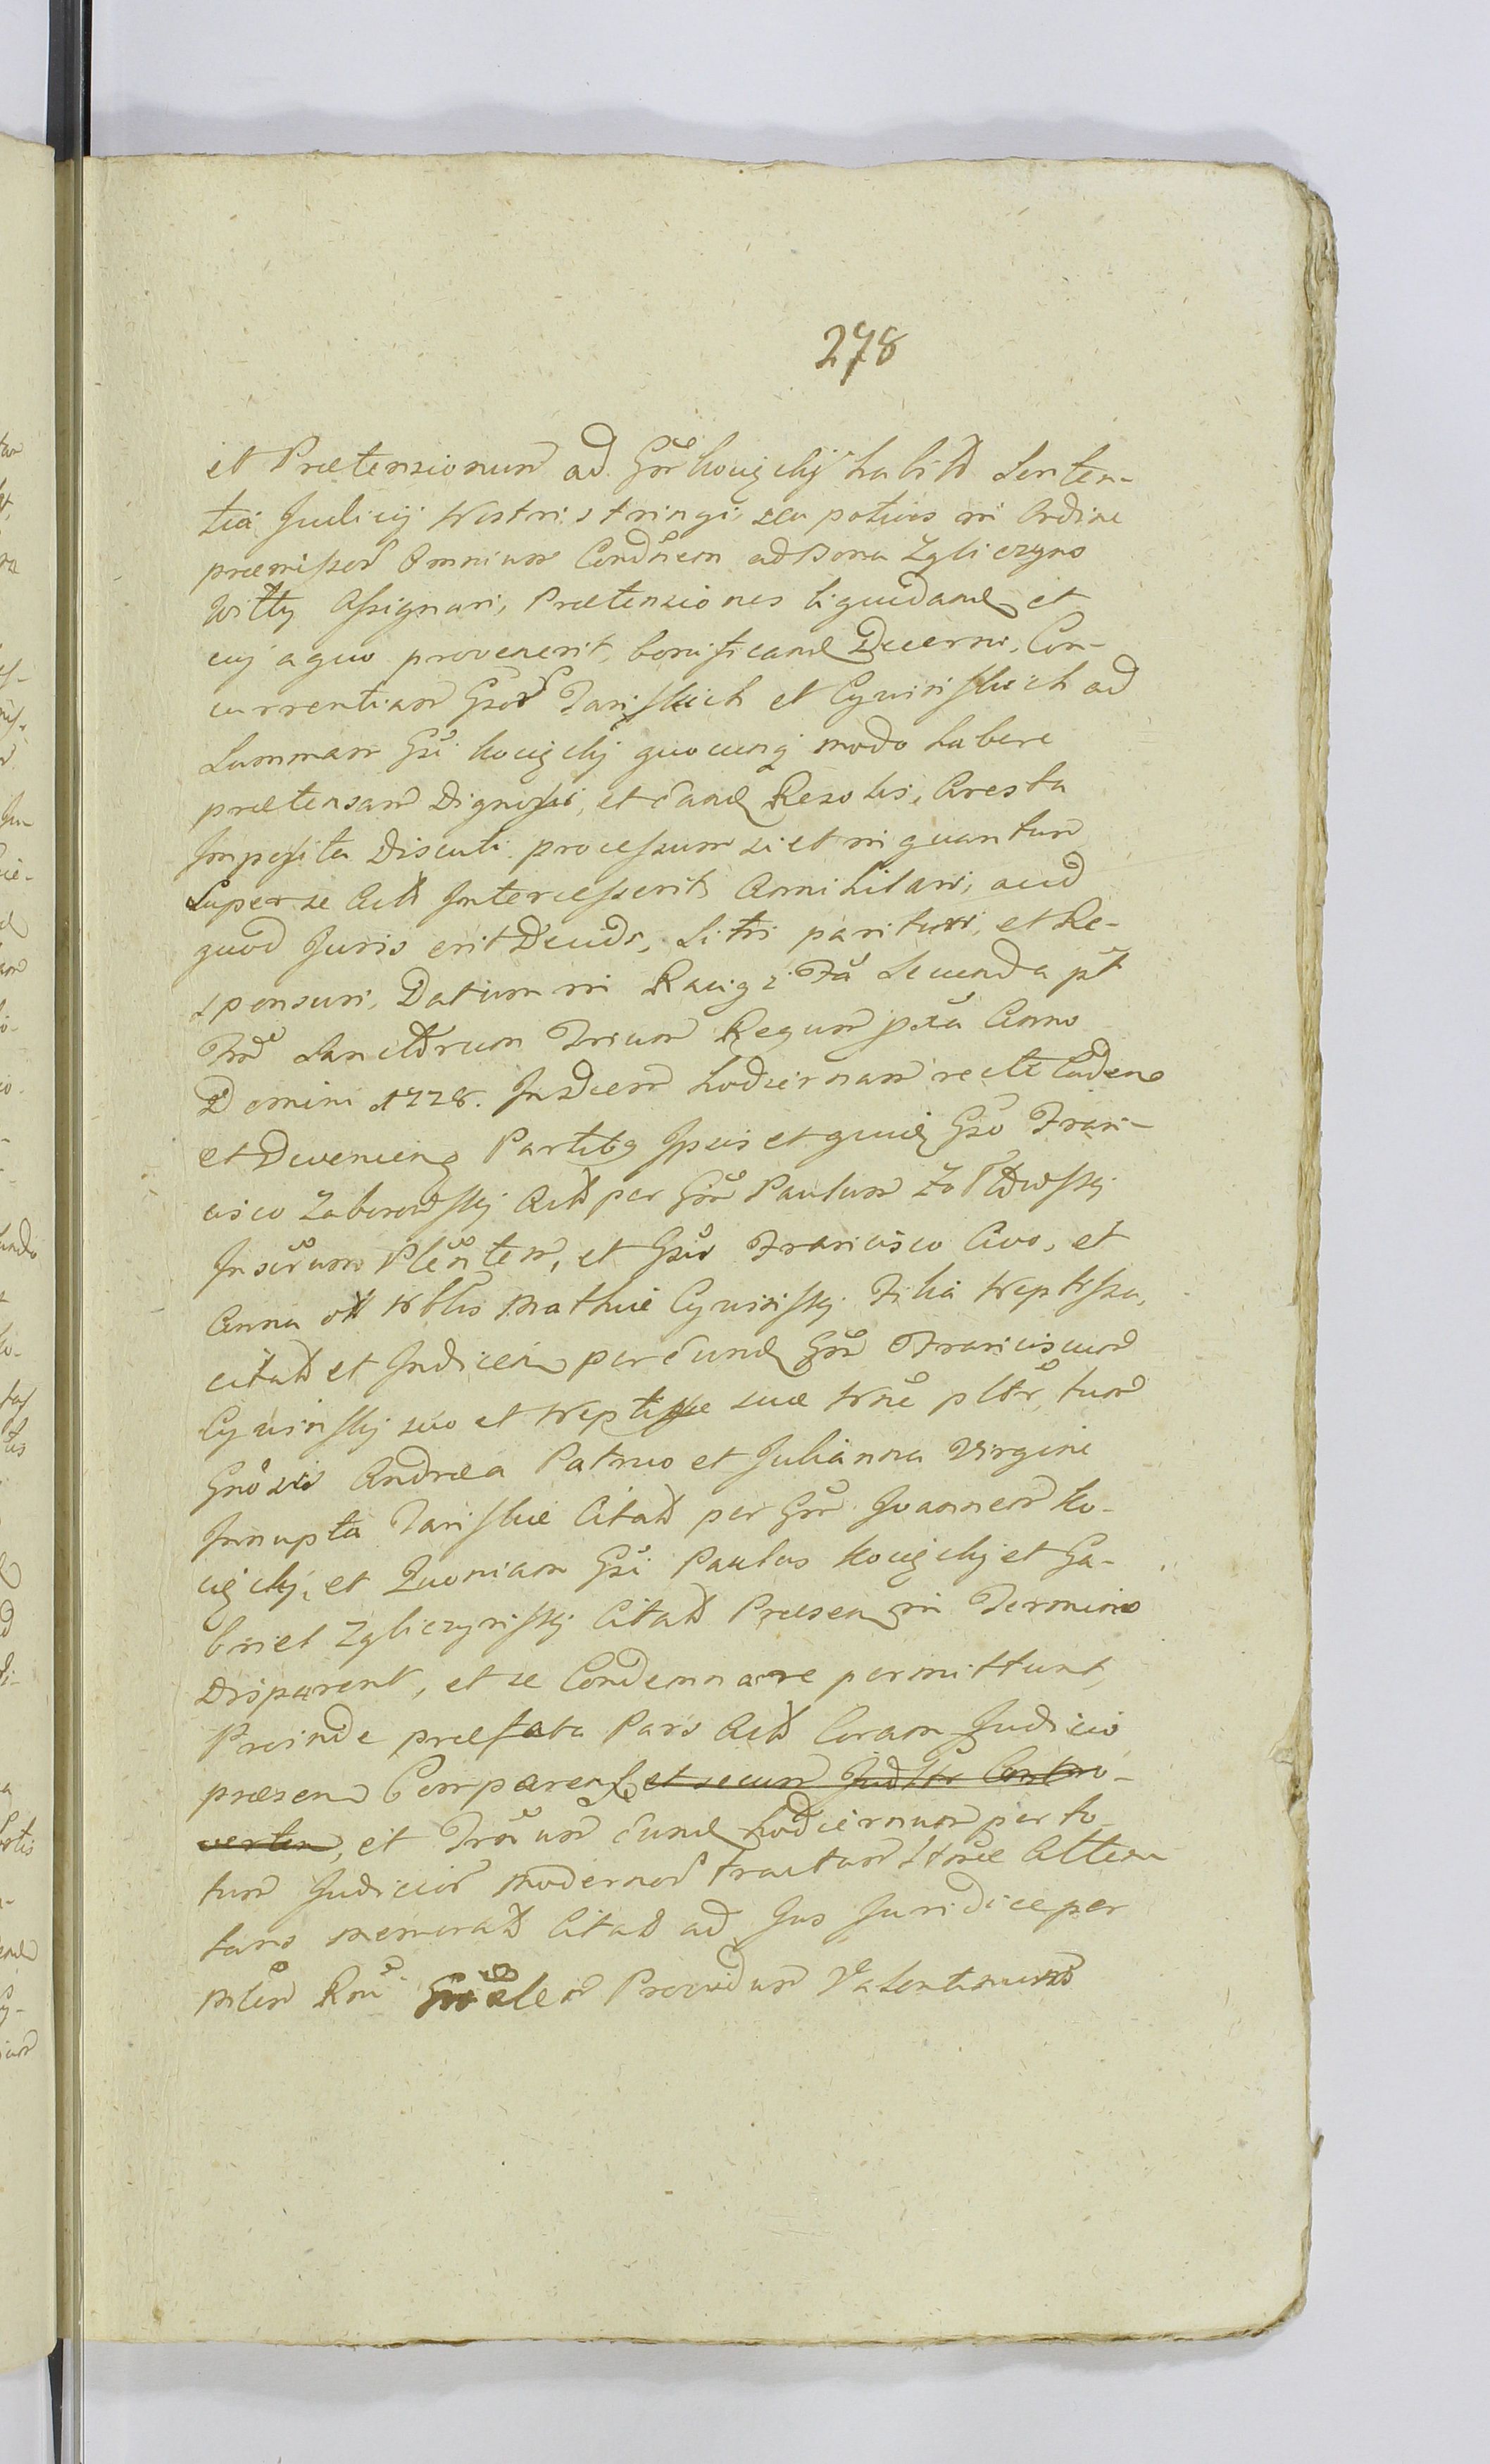 278
et Prætensionum ad Gsr̃ Kocięcky habit Senten-
tia Judicij Nostri stringi, seu potius in Ordine
præmissor Omnium Condñem ad Bona Zgliczyno
Witty Assignari, Prætensiones liquidand et
cuj a quo provenerit, bonificand Decerni, Con-
currentiam Gsor Tanskich et Cywinskich ad
Summam Gsi Kocięckj quocunq modo habere
prætensam Dignosci, et eand Resolvi, Aresta
Imposita Discuti processum si et in quantum
Super se Act Intercesserit Annihilari, aliud
quod Juris erit Decidi, Litri parituri, et Re-
sponsuri, Datum in Raciąż Fã Secunda pt
Fm̃ Sanctorum Trium Regum pxã Anno
Domini 1728. In Diem hodiernam recte Caden
et Devenien Partibq Ipsis et quidē Gso Fran-
cisco Zaborowskj Act per Gsm̃ Paulum
Plẽntem, et Gsis Francisco Avo, et
Anna Nblis Mathiæ Cywinskj Filia Neptissa,
citat et Indicen per eund Gsm̃ Franciscum
Cywinskj suo et Neptissæ suæ Nnẽ pltr, tum
Andrea Patruo et Julianna Virgine
Innupta Tanskie Citat per Gsm̃ Joannem Ko-
cięckj, et Quoniam Gsi Paulus Kocięckj et Ga-
briel Zgliczynskj Citat Præsen in Termino
Disparent, et se Condemnare permittunt,
Proinde præfata Pars Act Coram Judicio
præsen Comparens et secum Contro-
verten, et Trm̃um eund hodiernum per to-
tum Judicior modernor Tractum Attem
tans memorat Citat ad Jus Juridice per
Mlem Rni Providum Valentinum